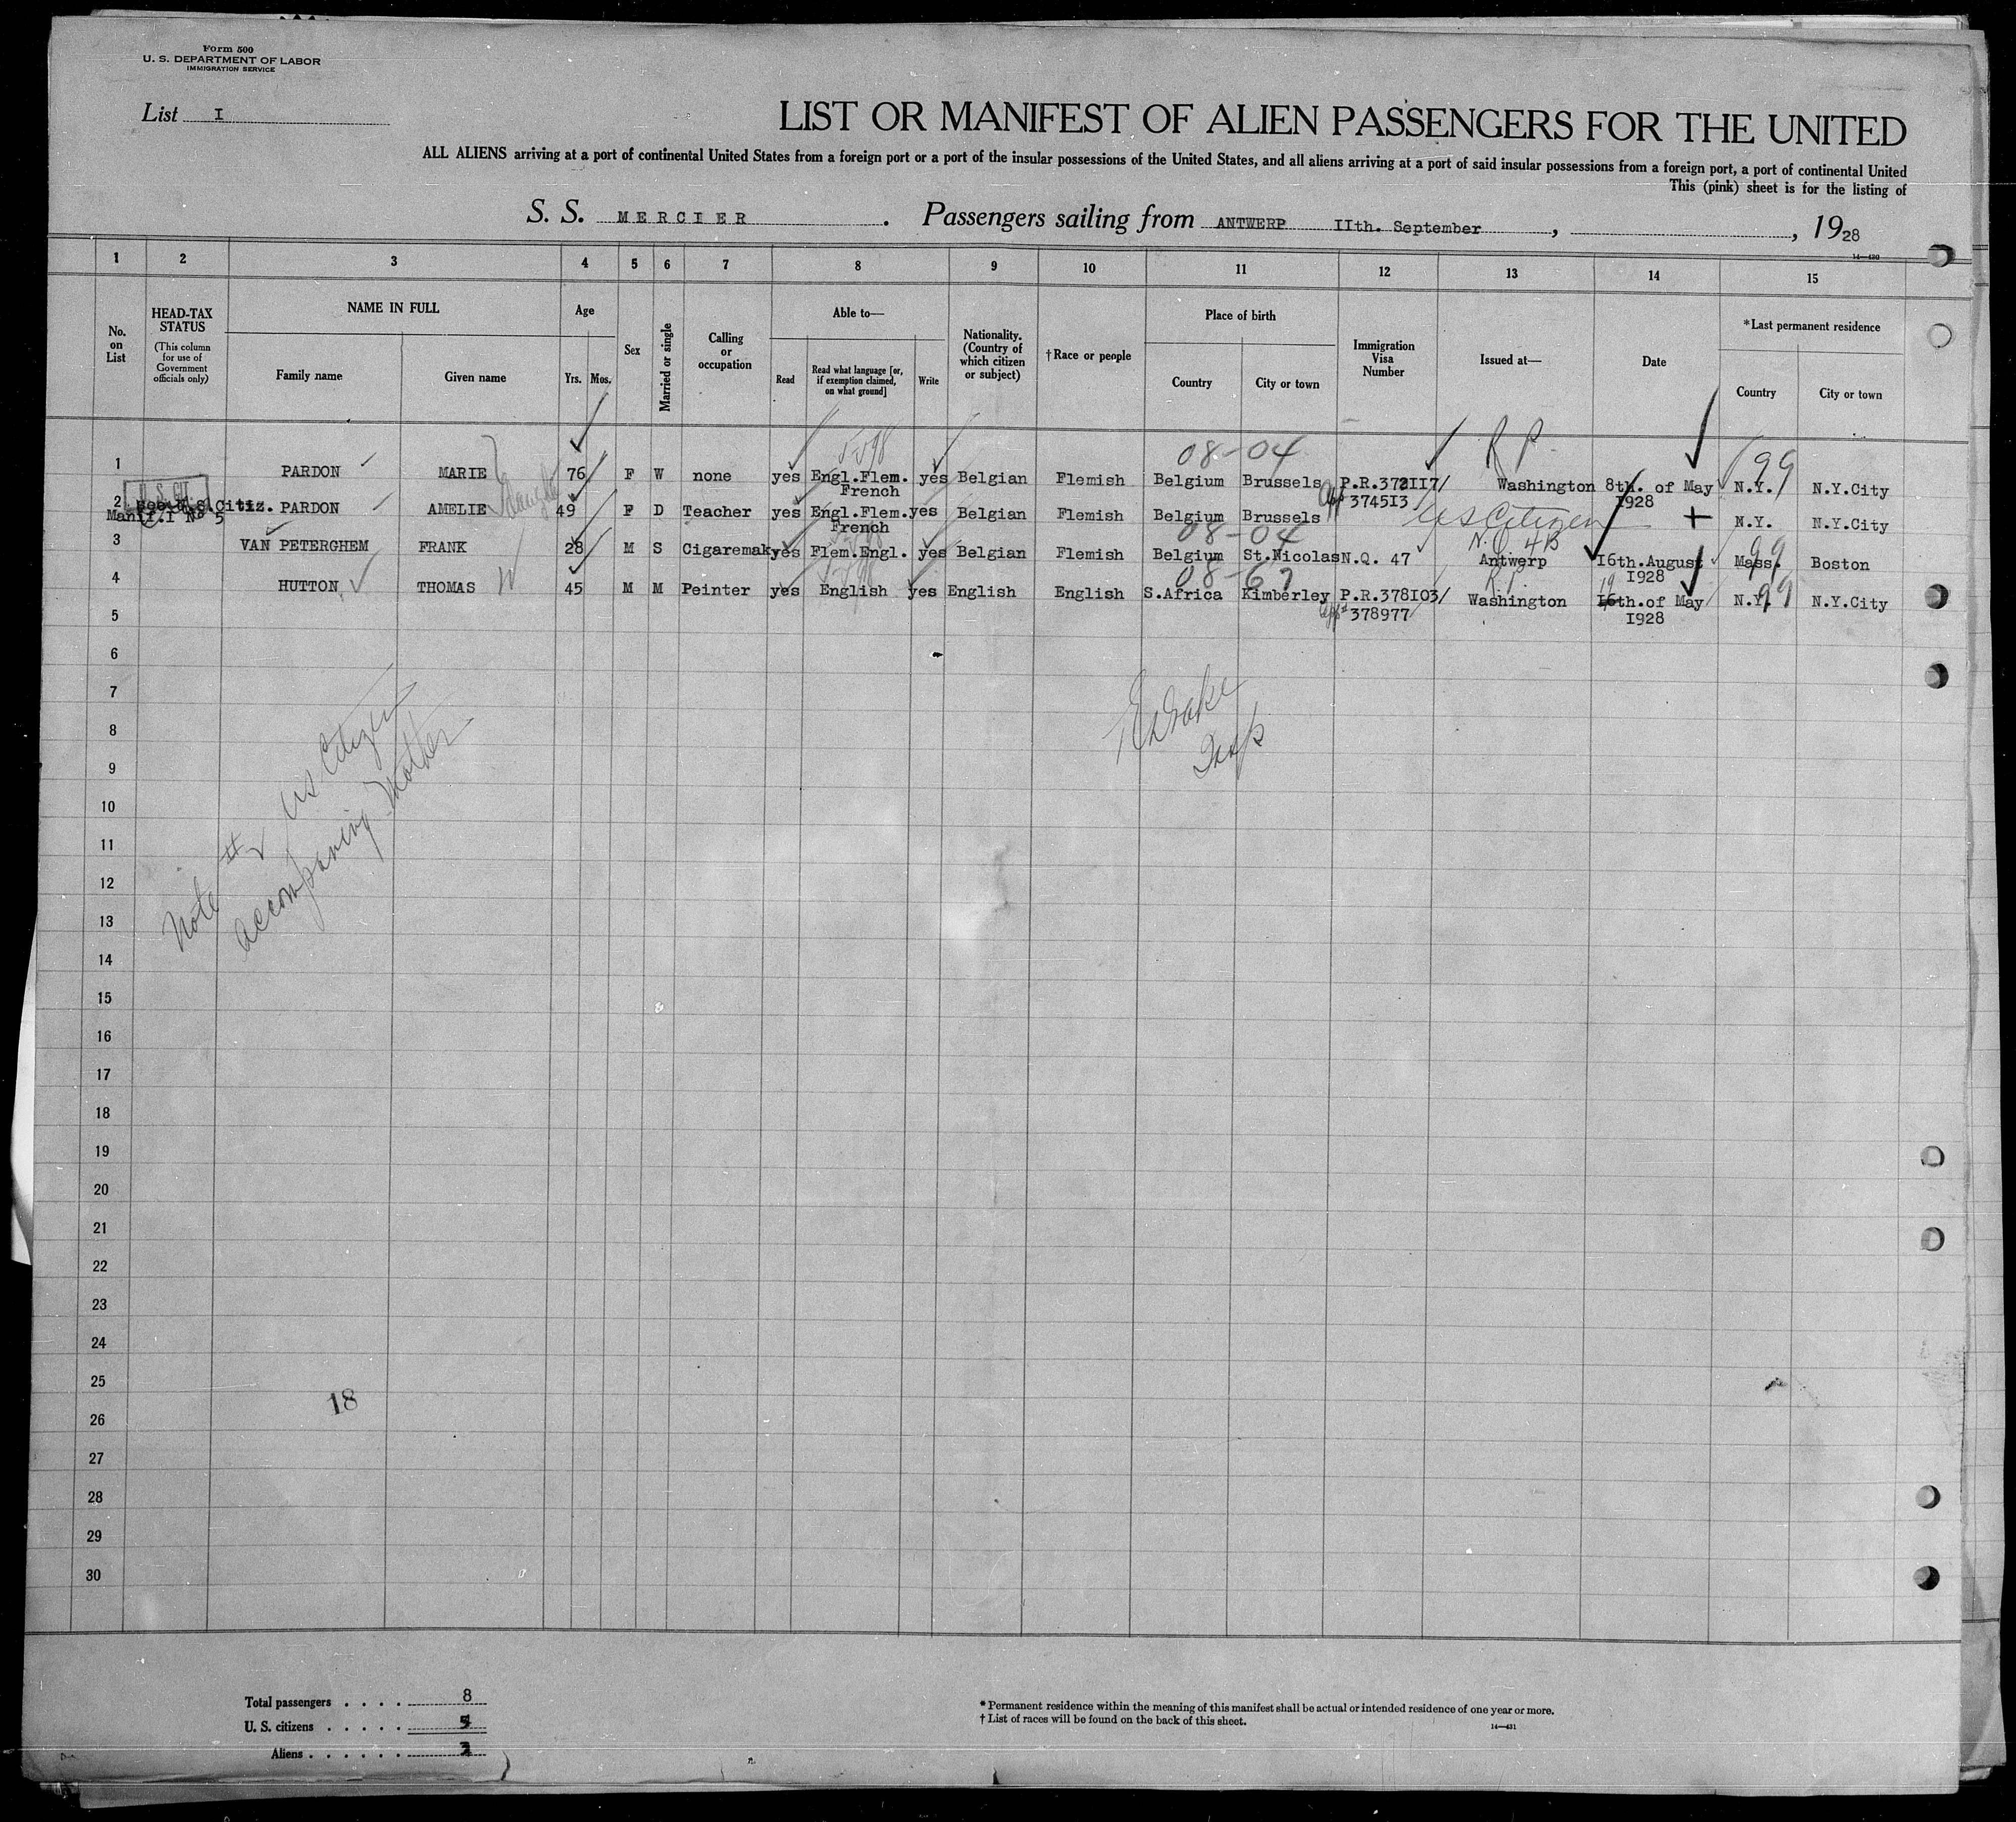 Form 500
U. S. DEPARTMENT OF LABOR
IMMIGRATION SERVICE
List I
LIST OR MANIFEST OF ALIEN PASSENGERS FOR THE UNITED
ALL ALIENS arriving at a port of continental United States from a foreign port or a port of the insular possessions of the United States, and all aliens arriving at a port of said insular possessions from a foreign port, a port of continental United
This (pink) sheet is for the listing of
S. S. MERCIER. Passengers sailing from ANTWERP IIth. September , , 1928
14—430
1 2 3 4 5 6 7 8 9 10 11 12 13 14 15
No. on List
HEAD-TAX STATUS
(This column for use of Government officials only)
NAME IN FULL
Family name
Given name
Age
Yrs. Mos.
Sex
Married or single
Calling or occupation
Able to—
Read
Read what language [or, if exemption claimed, on what ground]
Write
Nationality. (Country of which citizen or subject)
†Race or people
Place of birth
Country
City or town
Immigration Visa Number
Issued at—
Date
*Last permanent residence
Country
City or town
5598 08-04 R P. 99
1 PARDON MARIE 76 F W none yes Engl.Flem. French yes Belgian Flemish Belgium Brussels P.R.372II7/ 3745I3 Washington 8th. of May 1928 N.Y. N.Y.City
daughter
2 See U.S.Citiz. Manif.I No 5 PARDON AMELIE 49 F D Teacher yes Engl.Flem. French yes Belgian Flemish Belgium Brussels US Citizen + N.Y. N.Y.City
08-04 N.Q 4B 99
3 VAN PETERGHEM FRANK 28 M S Cigaremak yes Flem.Engl. yes Belgian Flemish Belgium St.Nicolas N.Q. 47 Antwerp I6th.August I928 Mass. Boston
08-67 R P. 99
4 HUTTON THOMAS W 45 M M Peinter yes English yes English English S.Africa Kimberley P.R.378I03/ 378977 Washington 16th.of May I928 N.Y. N.Y.City
19
5
6
7
8
9
10
11
12
13
14
15
16
17
18
19
20
21
22
23
24
25
26
27
28
29
30
Note #2 US Citizen
accompaning Mother
Insp
18
Total passengers . . . . 8
U. S. citizens . . . . . 5
Aliens . . . . . . 3
* Permanent residence within the meaning of this manifest shall be actual or intended residence of one year or more.
† List of races will be found on the back of this sheet.
14—431